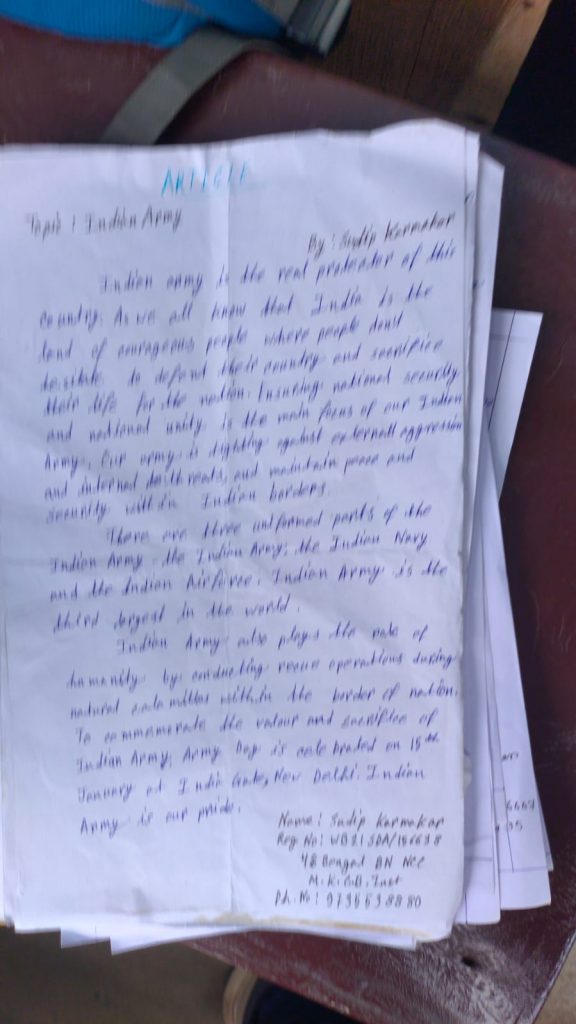 ARTICLE
Topic : Indian Army
By : Sudip Karmakar
Indian army is the real protector of this
country. As we all know that India is the
land of courageous people where people dont
hesitate to defend their country and sacrifice
their life for the nation. Insuring national security
and national unity is the main focus of our Indian
Army. Our army is fighting against externall aggression
and internal threads, and maintain peace and
security within Indian borders.
There are three uniformed parts of the
Indian Army - the Indian Army, the Indian Navy
and the Indian Airforce. Indian Army is the
third largest in the world.
Indian Army also plays the role of
humanity by conducting rescue operations during
natural calamities within the border of nation.
To commemorate the valour and sacrifice of
Indian Army, Army Day is celebraded on 15th
January at India Gate, New Delhi. Indian
Army is our pride.
Name : Sudip Karmakar
Reg No : WB21SDA/
48 Bengal BN NCC
M.K.G.B. Inst
Ph. No :